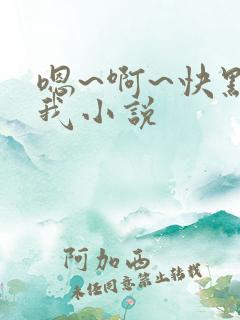 嗯~啊~快
我小说
阿加西
未经同意禁止转载